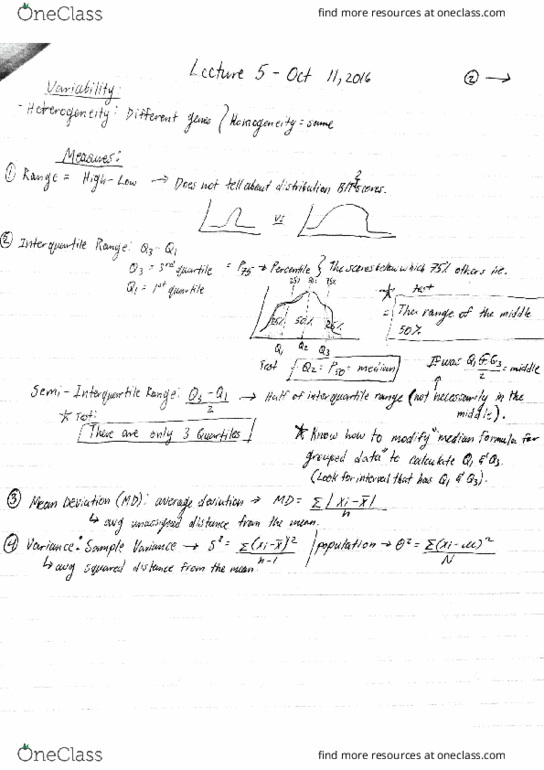 OneClass
find more resources at oneclass.com
Lecture 5 - Oct 11, 2016
② →
Variability:
- Heterogeneity: Different genes / Homogeneity = same
Measures:
① Range = High - Low → Does not tell about distribution scores.
vs
② Interquartile Range: Q3 - Q1
Q3 = 3rd quartile = P75 → Percentile } The scores below which 75% others lie.
Q1 = 1st quartile
25% 50% 75%
* test
= The range of the middle 50%
25% 50% 25%
Q1 Q2 Q3
Test { Q2 = P50 = median
If was Q1 Q3 / 2 = middle
Semi-Interquartile Range: Q3 - Q1 / 2 → Half of interquartile range (not necessarily in the middle).
* Test:
There are only 3 Quartiles!
* Know how to modify "median formula for
grouped data" to calculate Q1 & Q3.
(Look for interval that has Q1 & Q3).
③ Mean Deviation (MD): average deviation → MD = Σ|xi - x̅| / n
↳ avg unassigned distance from the mean.
④ Variance: Sample Variance → S² = Σ(xi - x̅)² / n-1 / population → σ² = Σ(xi - μ)² / N
↳ avg squared distance from the mean
OneClass
find more resources at oneclass.com